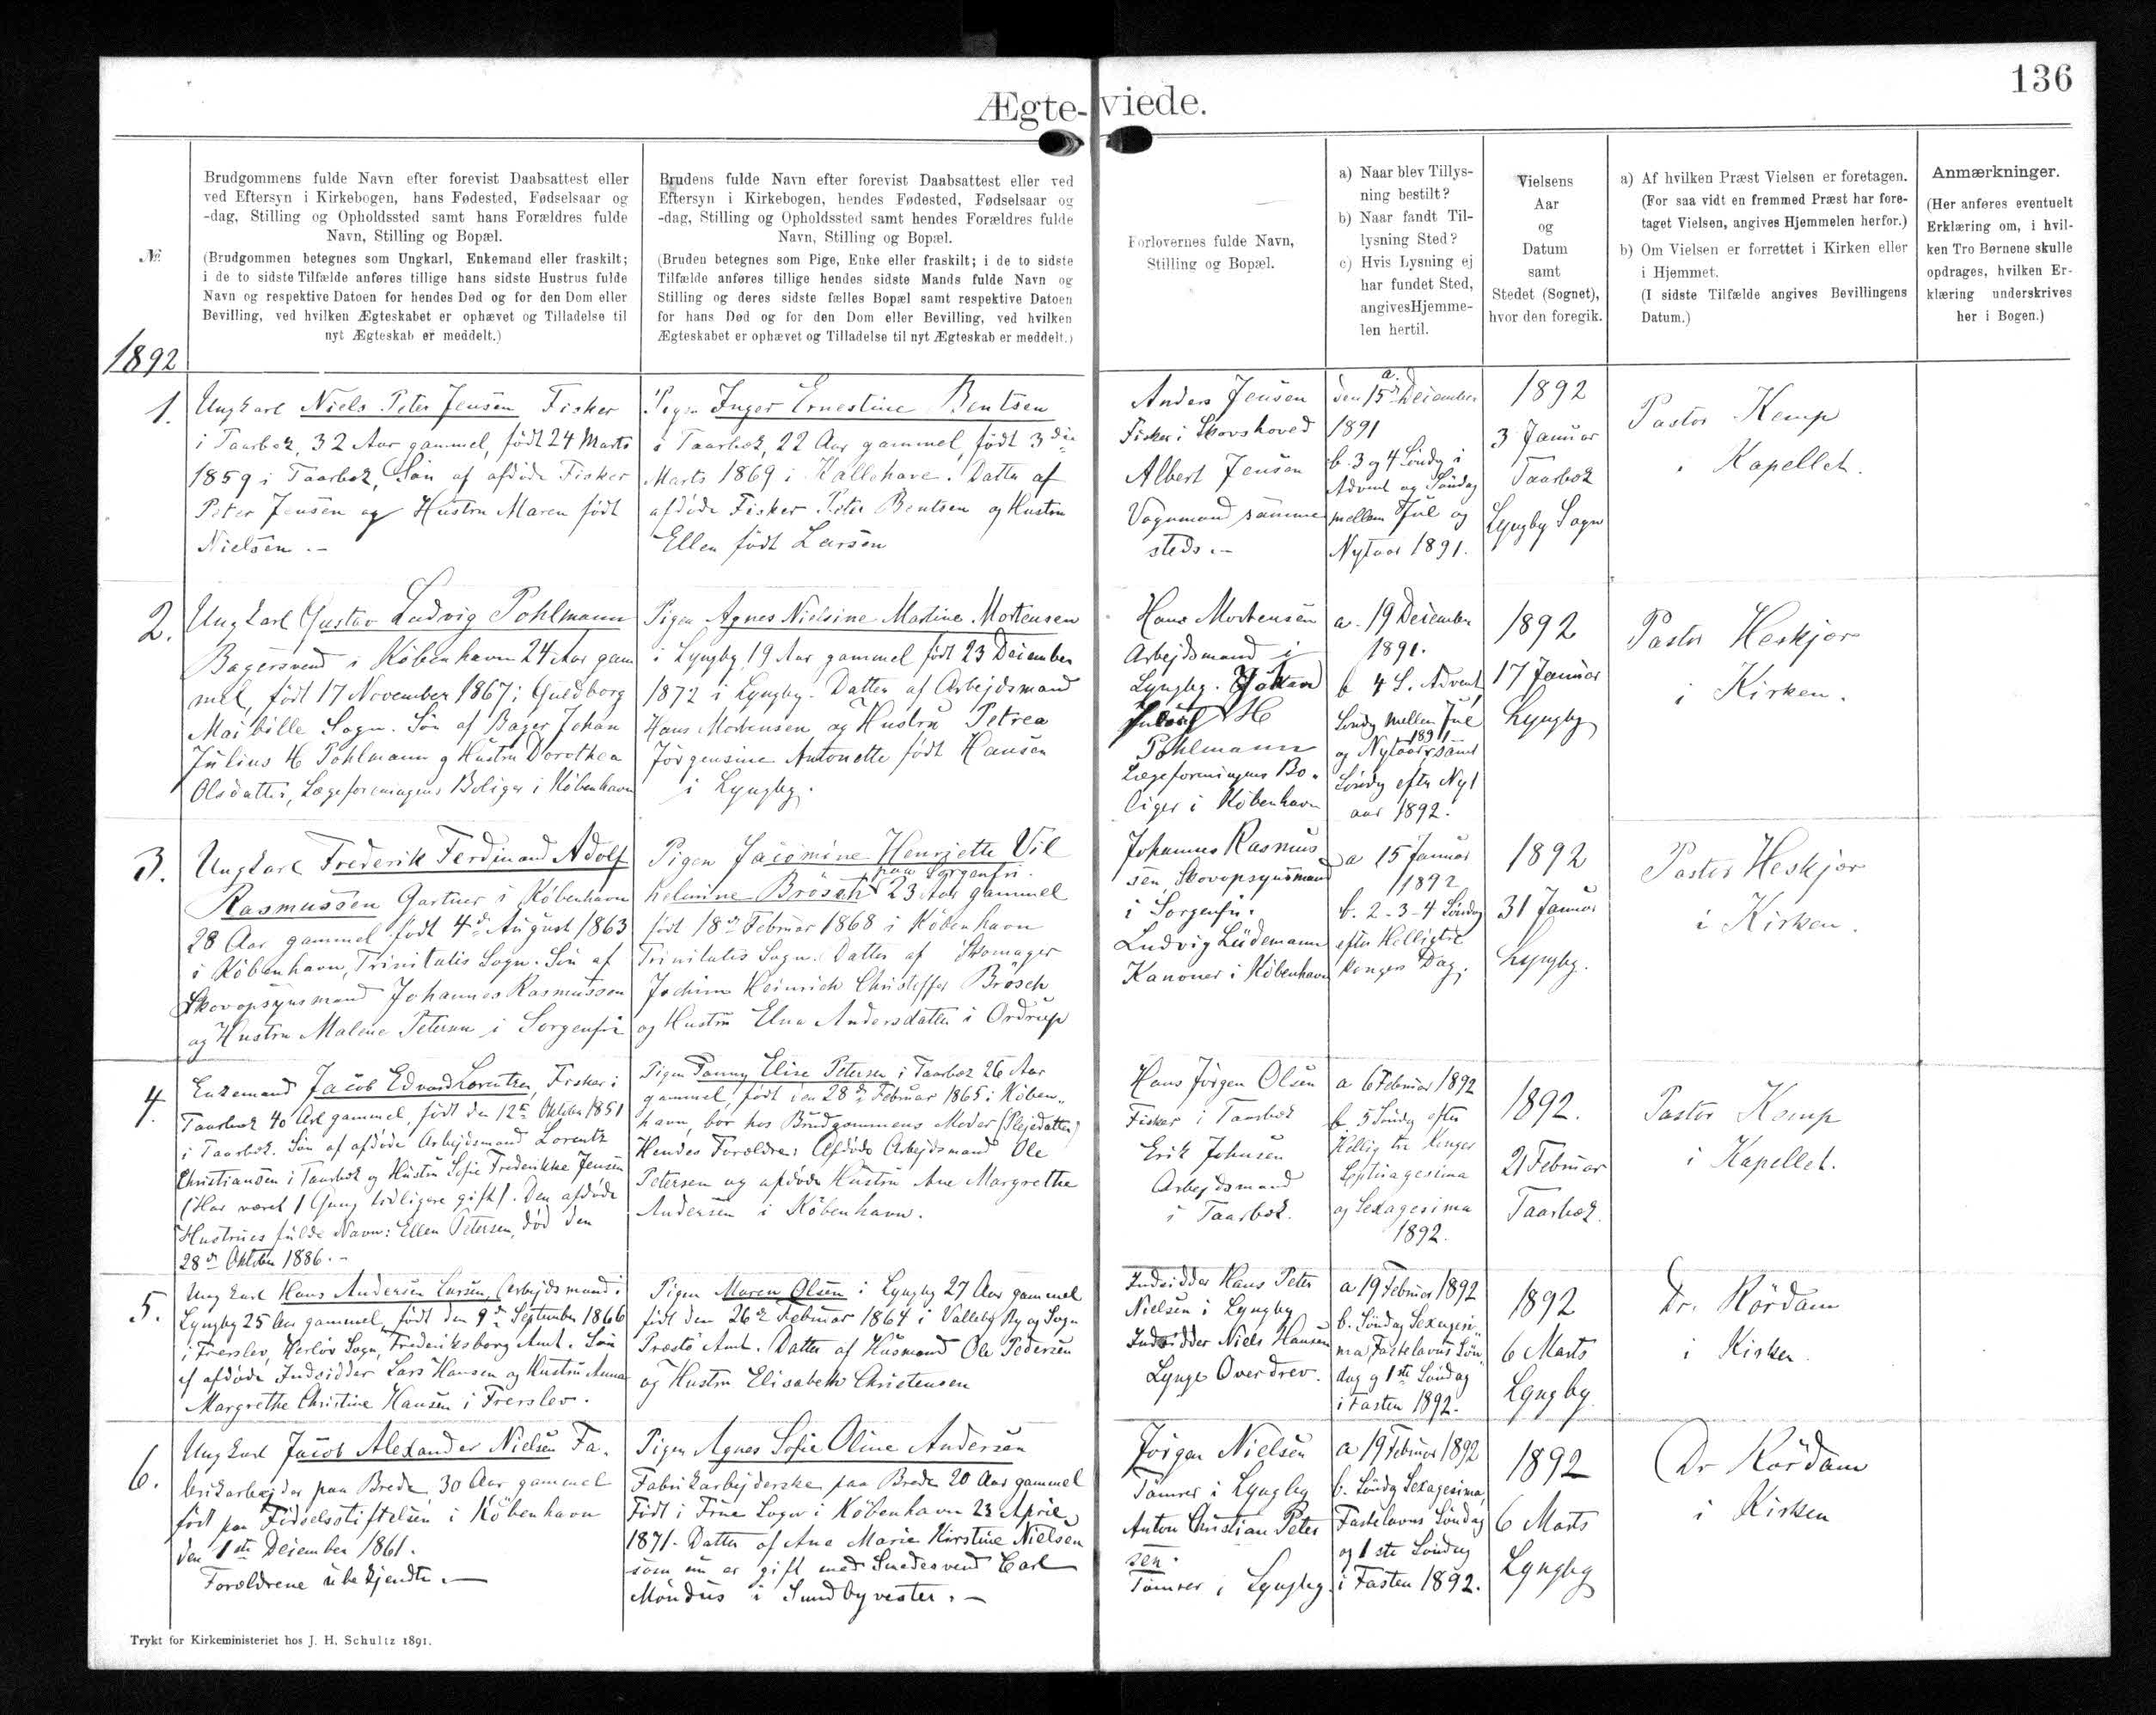 136
Ægte-viede.
№
1892
Brudgommens fulde Navn efter forevist Daabsattest eller
ved Eftersyn i Kirkebogen, hans Fødested, Fødselsaar og
-dag, Stilling og Opholdssted samt hans Forældres fulde
Navn, Stilling og Bopæl.
(Brudgommen betegnes som Ungkarl, Enkemand eller fraskilt;
i de to sidste Tilfælde anføres tillige hans sidste Hustrus fulde
Navn og respektive Datoen for hendes Død og for den Dom eller
Bevilling, ved hvilken Ægteskabet er ophævet og Tilladelse til
nyt Ægteskab er meddelt.)
Brudens fulde Navn efter forevist Daabsattest eller ved
Eftersyn i Kirkebogen, hendes Fødested, Fødselsaar og
-dag, Stilling og Opholdssted samt hendes Forældres fulde
Navn, Stilling og Bopæl.
(Bruden betegnes som Pige, Enke eller fraskilt; i de to sidste
Tilfælde anføres tillige hendes sidste Mands fulde Navn og
Stilling og deres sidste fælles Bopæl samt respektive Datoen
for hans Død og for den Dom eller Bevilling, ved hvilken
Ægteskabet er ophævet og Tilladelse til nyt Ægteskab er meddelt.)
Forlovernes fulde Navn,
Stilling og Bopæl.
a) Naar blev Tillys-
ning bestilt?
b) Naar fandt Til-
lysning Sted?
c) Hvis Lysning ej
har fundet Sted,
angivesHjemme-
len hertil.
Vielsens
Aar
og
Datum
samt
Stedet (Sognet),
hvor den foregik.
a) Af hvilken Præst Vielsen er foretagen.
(For saa vidt en fremmed Præst har fore-
taget Vielsen, angives Hjemmelen herfor.)
b) Om Vielsen er forrettet i Kirken eller
i Hjemmet.
(I sidste Tilfælde angives Bevillingens
Datum.)
Anmærkninger.
(Her anføres eventuelt
Erklæring om, i hvil-
ken Tro Børnene skulle
opdrages, hvilken Er-
klæring underskrives
her i Bogen.)
1.
Ungkarl Niels Peter Jensen Fisker
i Taarbæk, 32 Aar gammel, født 24 Marts
1859 i Taarbæk, Søn af afdøde Fisker
Peter Jensen og Hustru Maren født
Nielsen.-
Pigen Inger Ernestine Bentsen
i Taarbæk, 22 Aar gammel, født 3die
Marts 1869 i Kallehave. Datter af
afdøde Fisker Peter Bentsen og Hustru
Ellen født Larsen
Anders Jensen
Fisker i Skovshoved
Albert Jensen
Vognmand samme
steds.-
a.
den 15de December
1891
b. 3 og 4 Søndag i
Advent og Søndag
mellem Jul og
Nytaar 1891.
1892
3 Januar
Taarbæk
Lyngby Sogn
Pastor Kemp
i Kapellet.
2.
Ungkarl Gustav Ludvig Pohlmann
Bagersvend i København 24 Aar gam
mel, født 17 November 1867 i Guldborg
Maibølle Sogn. Søn af Bager Johan
Julius H Pohlmann og Hustru Dorothea
Olsdatter, Lægeforeningens Boliger i København
Pigen Agnes Nielsine Martine Mortensen
i Lyngby 19 Aar gammel født 23 December
1872 i Lyngby. Datter af Arbejdsmand
Hans Mortensen og Hustru Petrea
Jørgensine Antonette født Hansen
i Lyngby.
Hans Mortensen
Arbejdsmand i
Lyngby. Johan
Julius H
Pohlmann
Lægeforeningens Bo-
liger i København
a. 19 December
1891.
b 4 S. Advent
Søndag mellem Jul
og Nytaar 1891, samt
Søndag efter Nyt
aar 1892.
1892
17 Januar
Lyngby
Pastor Heskjær
i Kirken.
3.
Ungkarl Frederik Ferdinand Adolf
Rasmussen Gartner i København
28 Aar gammel født 4de August 1863
i København, Trinitatis Sogn. Søn af
Skovopsynsmand Johannes Rasmussen
og Hustru Malene Petersen i Sorgenfri
Pigen Jacomine Henriette Vil
helmine Brøsch paa Sorgenfri. 23 Aar gammel
født 18de Februar 1868 i København
Trinitatis Sogn. Datter af Skomager
Jochim Heinrich Christoffer Brøsch
og Hustru Elna Andersdatter i Ordrup
Johannes Rasmus
sen, Skovopsynsmand
i Sorgenfri.
Ludvig Lüdemann
Kanoner i København
a 15 Januar
1892
b. 2-3-4 Søndag
efter Hellig tre
Kongers Dag.
1892
31 Januar
Lyngby.
Pastor Heskjær
i Kirken.
4.
Enkemand Jacob Edvard Lorentzen, Fisker i
Taarbæk 40 Aar gammel, født den 12te Oktober 1851
i Taarbæk. Søn af afdøde Arbejdsmand Lorentz
Christiansen i Taarbæk og Hustru Sofie Frederikke Jensen
(Har været 1 Gang tidligere gift). Den afdøde
Hustrues fulde Navn: Ellen Petersen, død den
28de Oktober 1886.-
Pigen Fanny Elise Petersen i Taarbæk 26 Aar
gammel, født den 28de Februar 1865 i Køben-
havn, bor hos Brudgommens Moder (Plejedatter)
Hendes Forældre: Afdøde Arbejdsmand Ole
Petersen og afdøde Hustru Ane Margrethe
Andersen i København.
Hans Jørgen Olsen
Fisker i Taarbæk
Erik Johnsen
Arbejdsmand
i Taarbæk.
a 6 Februar 1892
b. 5 Søndag efter
Hellig tre Konger
Septuagesima
og Sexagesima
1892.
1892.
21 Februar
Taarbæk.
Pastor Kemp
i Kapellet.
5.
Ungkarl Hans Andersen Larsen, Arbejdsmand i
Lyngby 25 Aar gammel, født den 9de September 1866
i Freerslev, Herløv Sogn, Frederiksborg Amt. Søn
af afdøde Indsidder Lars Hansen og Hustru Anna
Margrethe Christine Hansen i Freerslev.
Pigen Maren Olsen i Lyngby 27 Aar gammel
født den 26de Februar 1864 i Valleby By og Sogn
Præstø Amt. Datter af Husmand Ole Pedersen
og Hustru Elisabeth Christensen
Indsidder Hans Peter
Nielsen i Lyngby
Indsidder Niels Hansen
Lynge Overdrev.
a 19 Februar 1892
b. Søndag Sexagesi-
ma, Fastelavns Søn-
dag og 1ste Søndag
i Fasten 1892.
1892
6 Marts
Lyngby.
Dr. Rørdam
i Kirken.
6.
Ungkarl Jacob Alexander Nielsen Fa-
brikarbejder paa Brede, 30 Aar gammel
født paa Fødselsstiftelsen i København
den 1ste December 1861.
Forældrene ubekjendte.-
Pigen Agnes Sofie Oline Andersen
Fabrikarbejderske paa Brede 20 Aar gammel
Født i Frue Sogn i København 23 April
1871. Datter af Ane Marie Kirstine Nielsen
som nu er gift med Smedesvend Carl
Møndrus i Sundbyvester.-
Jørgen Nielsen
Tømrer i Lyngby
Anton Christian Peter
sen.
Tømrer i Lyngby.
a 19 Februar 1892
b. Søndag Sexagesima,
Fastelavns Søndag
og 1ste Søndag
i Fasten 1892.
1892
6 Marts
Lyngby
Dr Rørdam
i Kirken
Trykt for Kirkeministeriet hos J. H. Schultz 1891.